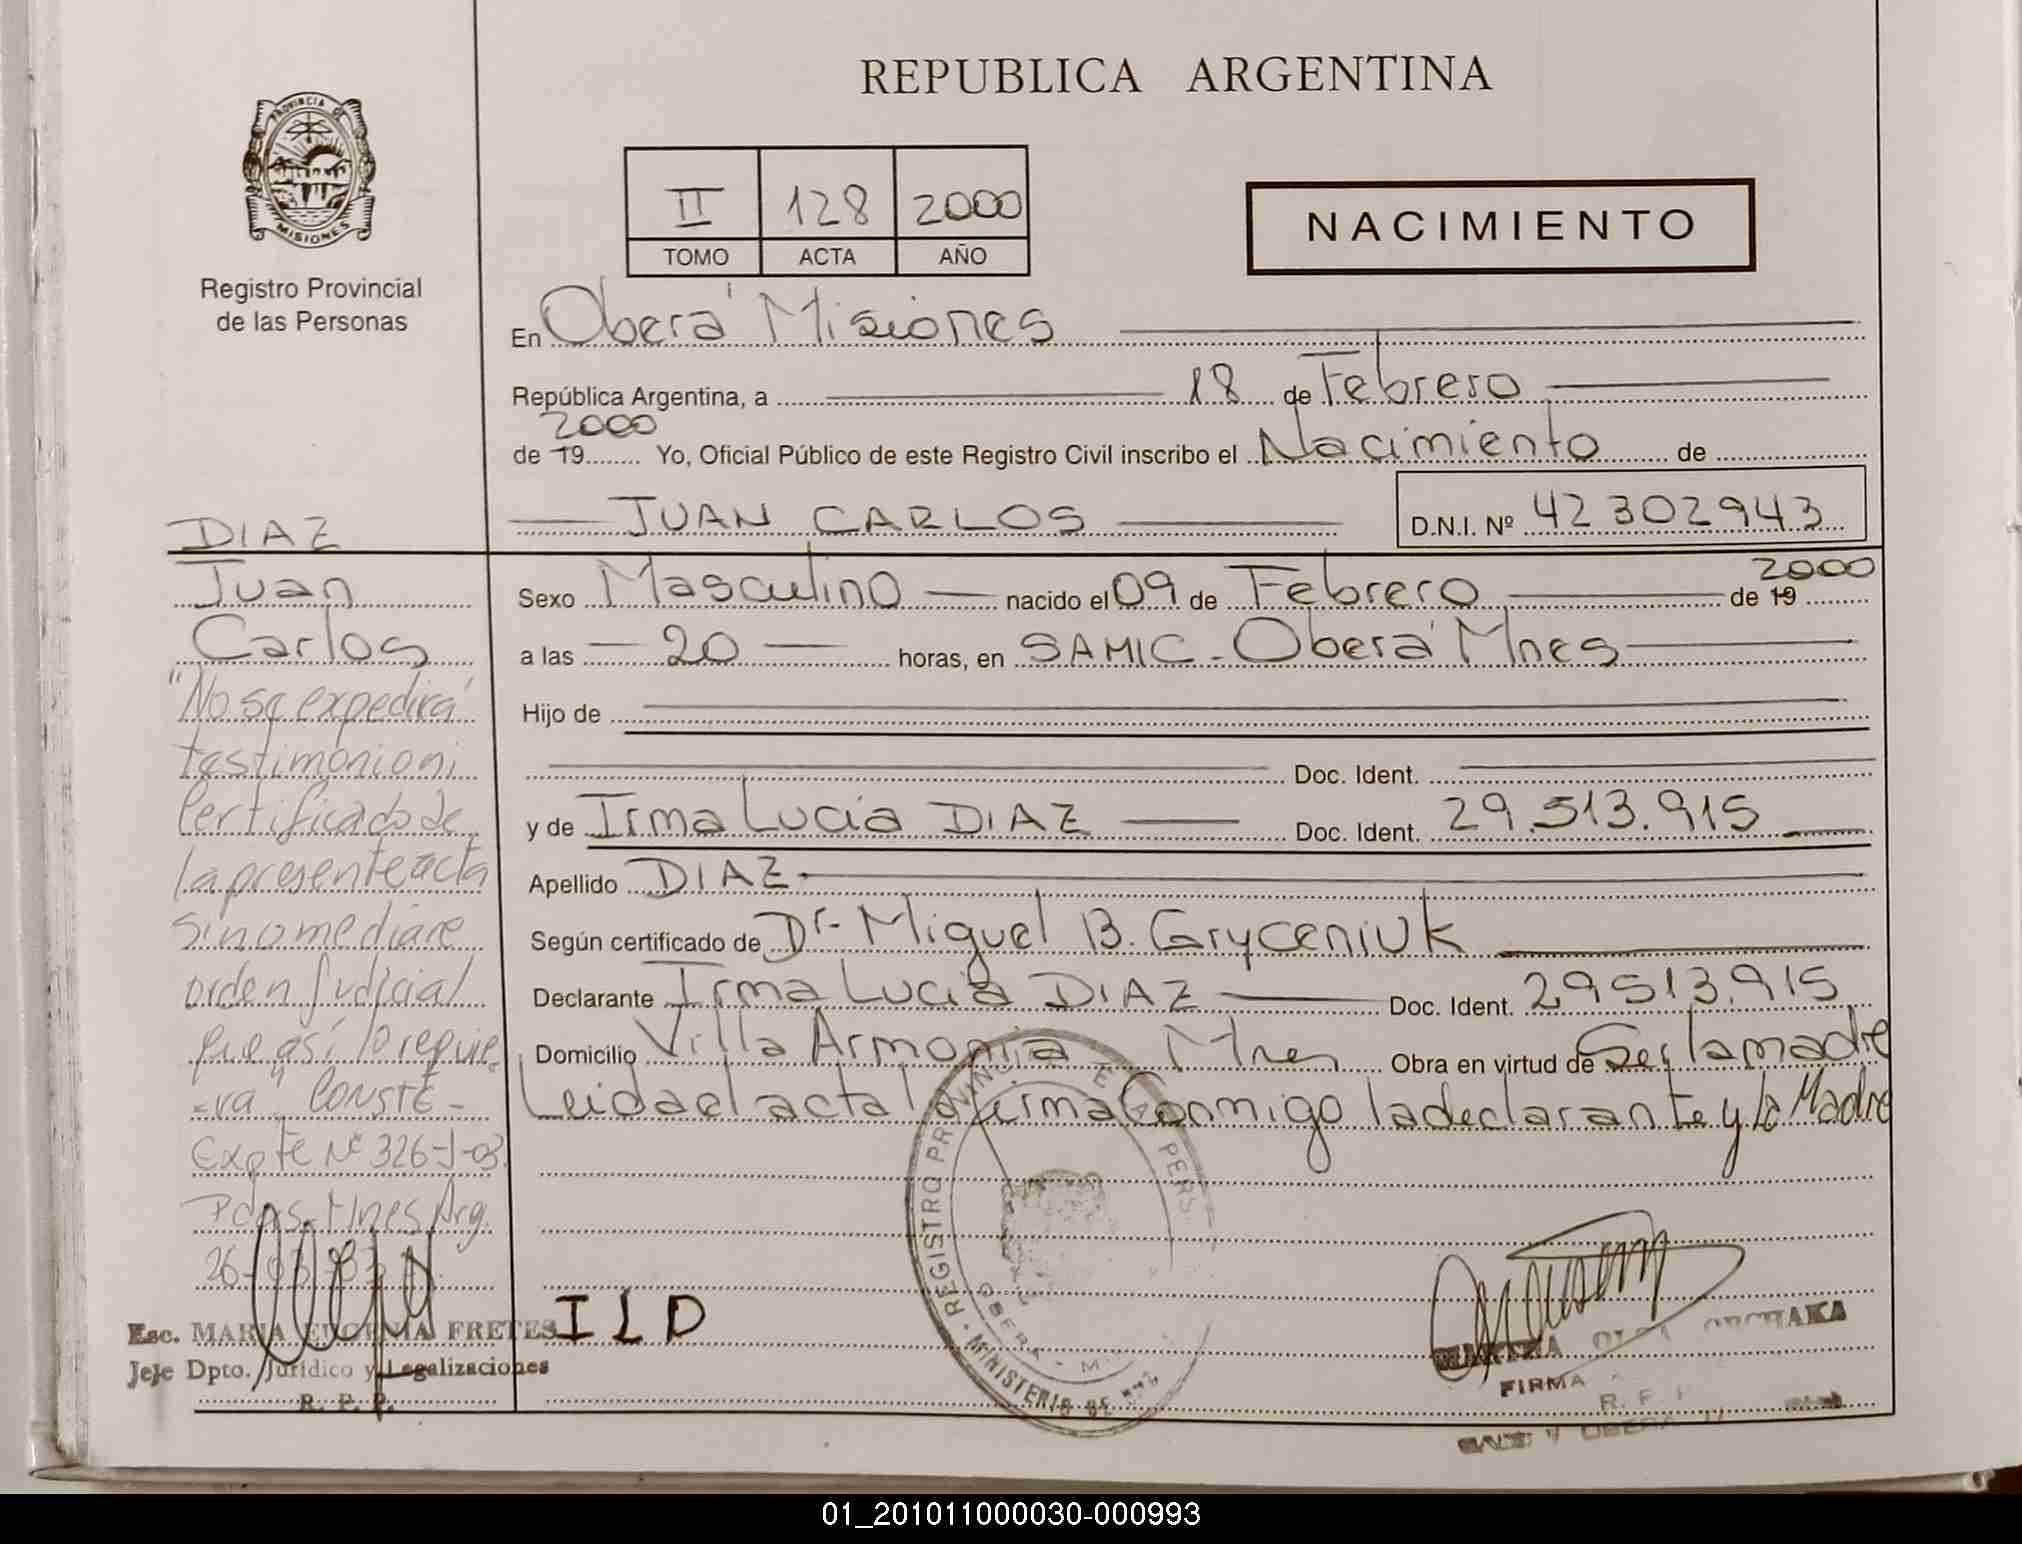 REPUBLICA ARGENTINA
PROVINCIA DE
MISIONES
Registro Provincial
de las Personas
II 128 2000
TOMO ACTA AÑO
NACIMIENTO
En Oberá Misiones
República Argentina, a 18 de Febrero
2000
de 19 Yo, Oficial Público de este Registro Civil inscribo el Nacimiento de
JUAN CARLOS D.N.I. Nº 42 302943
DIAZ
Juan
Carlos
"No se expedirá
testimonio ni
Certificado de
la presente acta
si no mediare
orden judicial
que así lo requie-
=ra" CONSTE-
Expte Nº 326-J-03.
Pdas-Mnes Arg.
26-03-03
Esc. MARIA EUGENIA FRETES
Jefe Dpto. Jurídico y Legalizaciones
R. P. P.
Sexo Masculino nacido el 09 de Febrero de 19 2000
a las 20 horas, en SAMIC - Oberá Mnes
Hijo de
Doc. Ident.
y de Irma Lucia DIAZ Doc. Ident. 29.513.915
Apellido DIAZ
Según certificado de Dr- Miguel B. Gryceniuk
Declarante Irma Lucia DIAZ Doc. Ident. 29513.915
Domicilio Villa Armonia Mnes Obra en virtud de Ser la madre
Leida el acta la firma Conmigo la declarante y la Madre
REGISTRO PROVINCI E PERS
OBERA - M
MINISTERIO DE
ILD
ORCHAKA
FIRMA
R. P.
OBERA
01_201011000030-000993